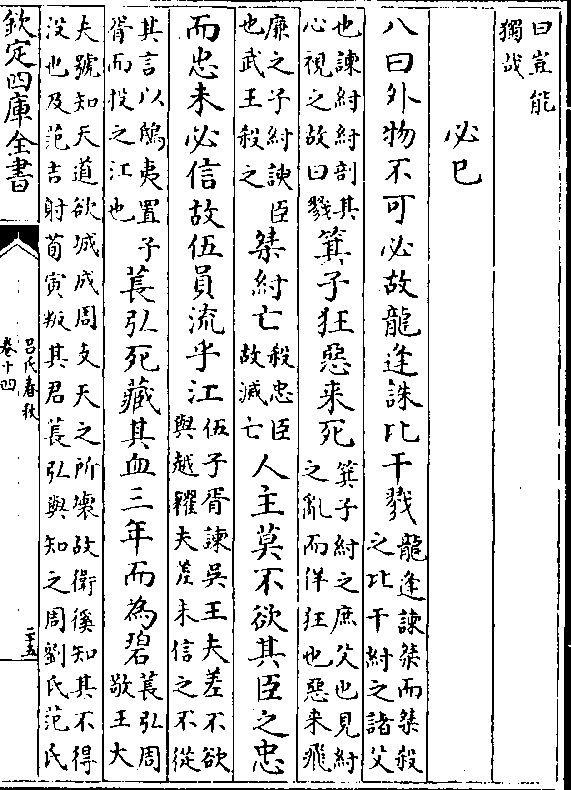 曰豈能
獨哉
必巳
八曰外物不可必故龍逄誅比干戮龍逄諫桀而桀殺
之比干紂之諸父
也諫紂紂剖其
心視之故曰戮
箕子狂惡来死箕子紂之庶父也見紂
之亂而佯狂也惡来飛
廉之子紂諛臣
也武王殺之
桀紂亡殺忠臣
故滅亡
人主莫不欲其臣之忠
而忠未必信故伍員流乎江伍子胥諫吳王夫差不欲
與越糴夫差未信之不從
其言以鴟夷置子
胥而投之江也
萇弘死藏其血三年而為碧萇弘周
敬王大
夫號知天道欲城成周支天之所壞故衛徯知其不得
没也及范吉射荀寅叛其君萇弘與知之周劉氏范氏
欽定四庫全書
吕氏春秋
卷十四
二十五